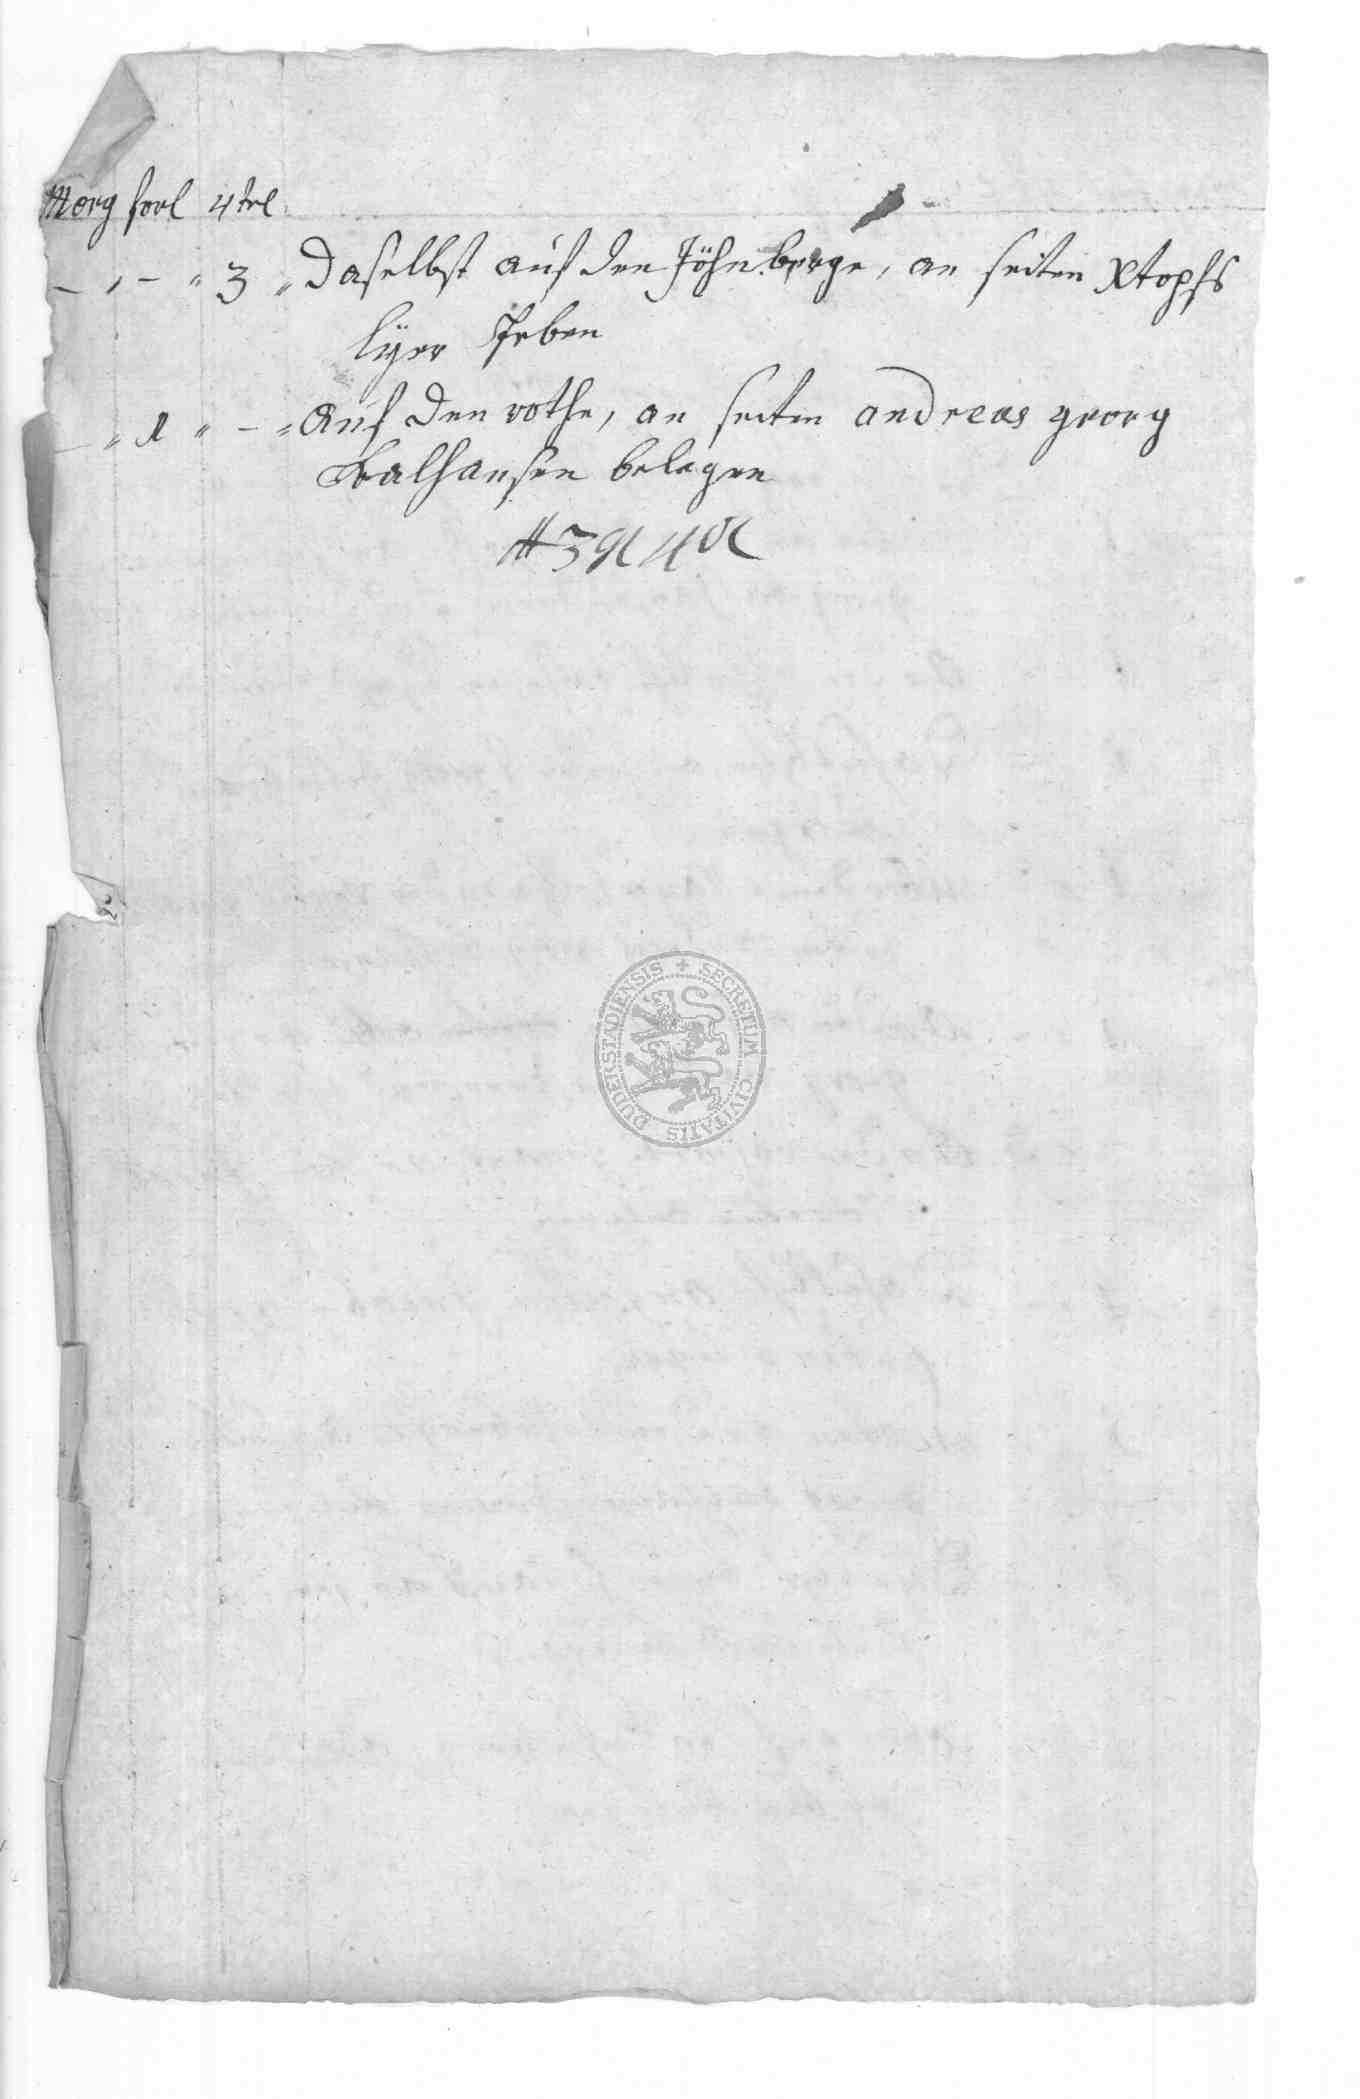 Morg forl 4tel
– „ – „ 3 „ Daselbst auf den Jöhnberge, an seiten Xtophs
lyer Erben
– „ 1 „ – „ Auf den rothe, an seiten andreas georg
Balhausen belegen
SECRETUM CIVITATIS DUDERSTADIENSIS